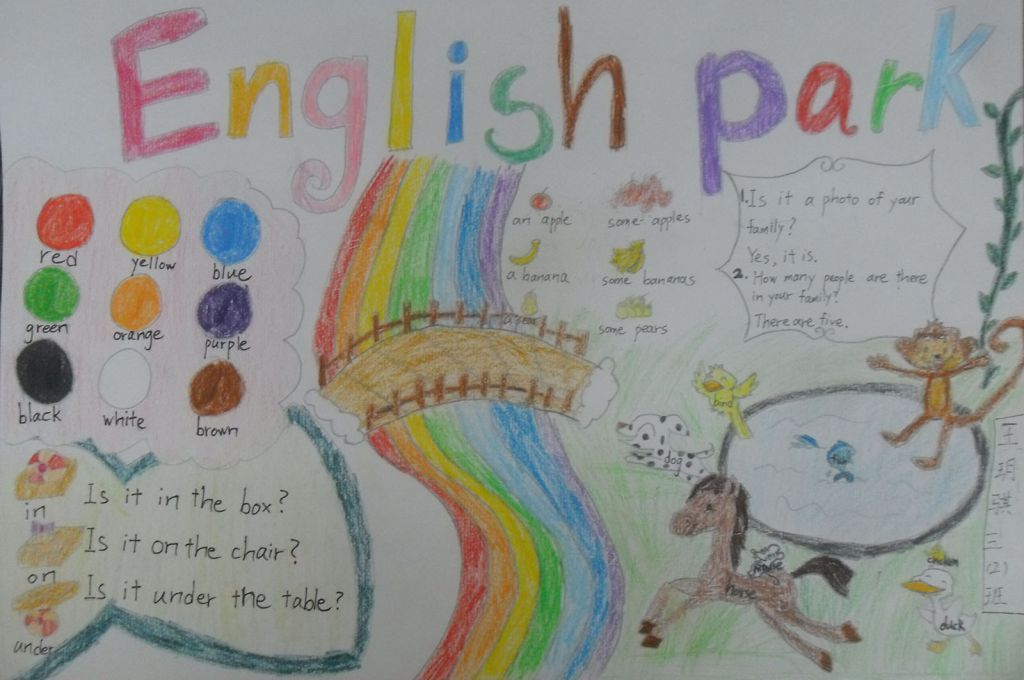 English park
red
yellow
blue
green
orange
purple
black
white
brown
in
Is it in the box?
on
Is it on the chair?
under
Is it under the table?
an apple
some apples
a banana
some bananas
a pear
some pears
1. Is it a photo of your
family?
Yes, it is.
2. How many people are there
in your family?
There are five.
bird
dog
horse
mouse
chicken
duck
王
玥
骐
三
(2)
班